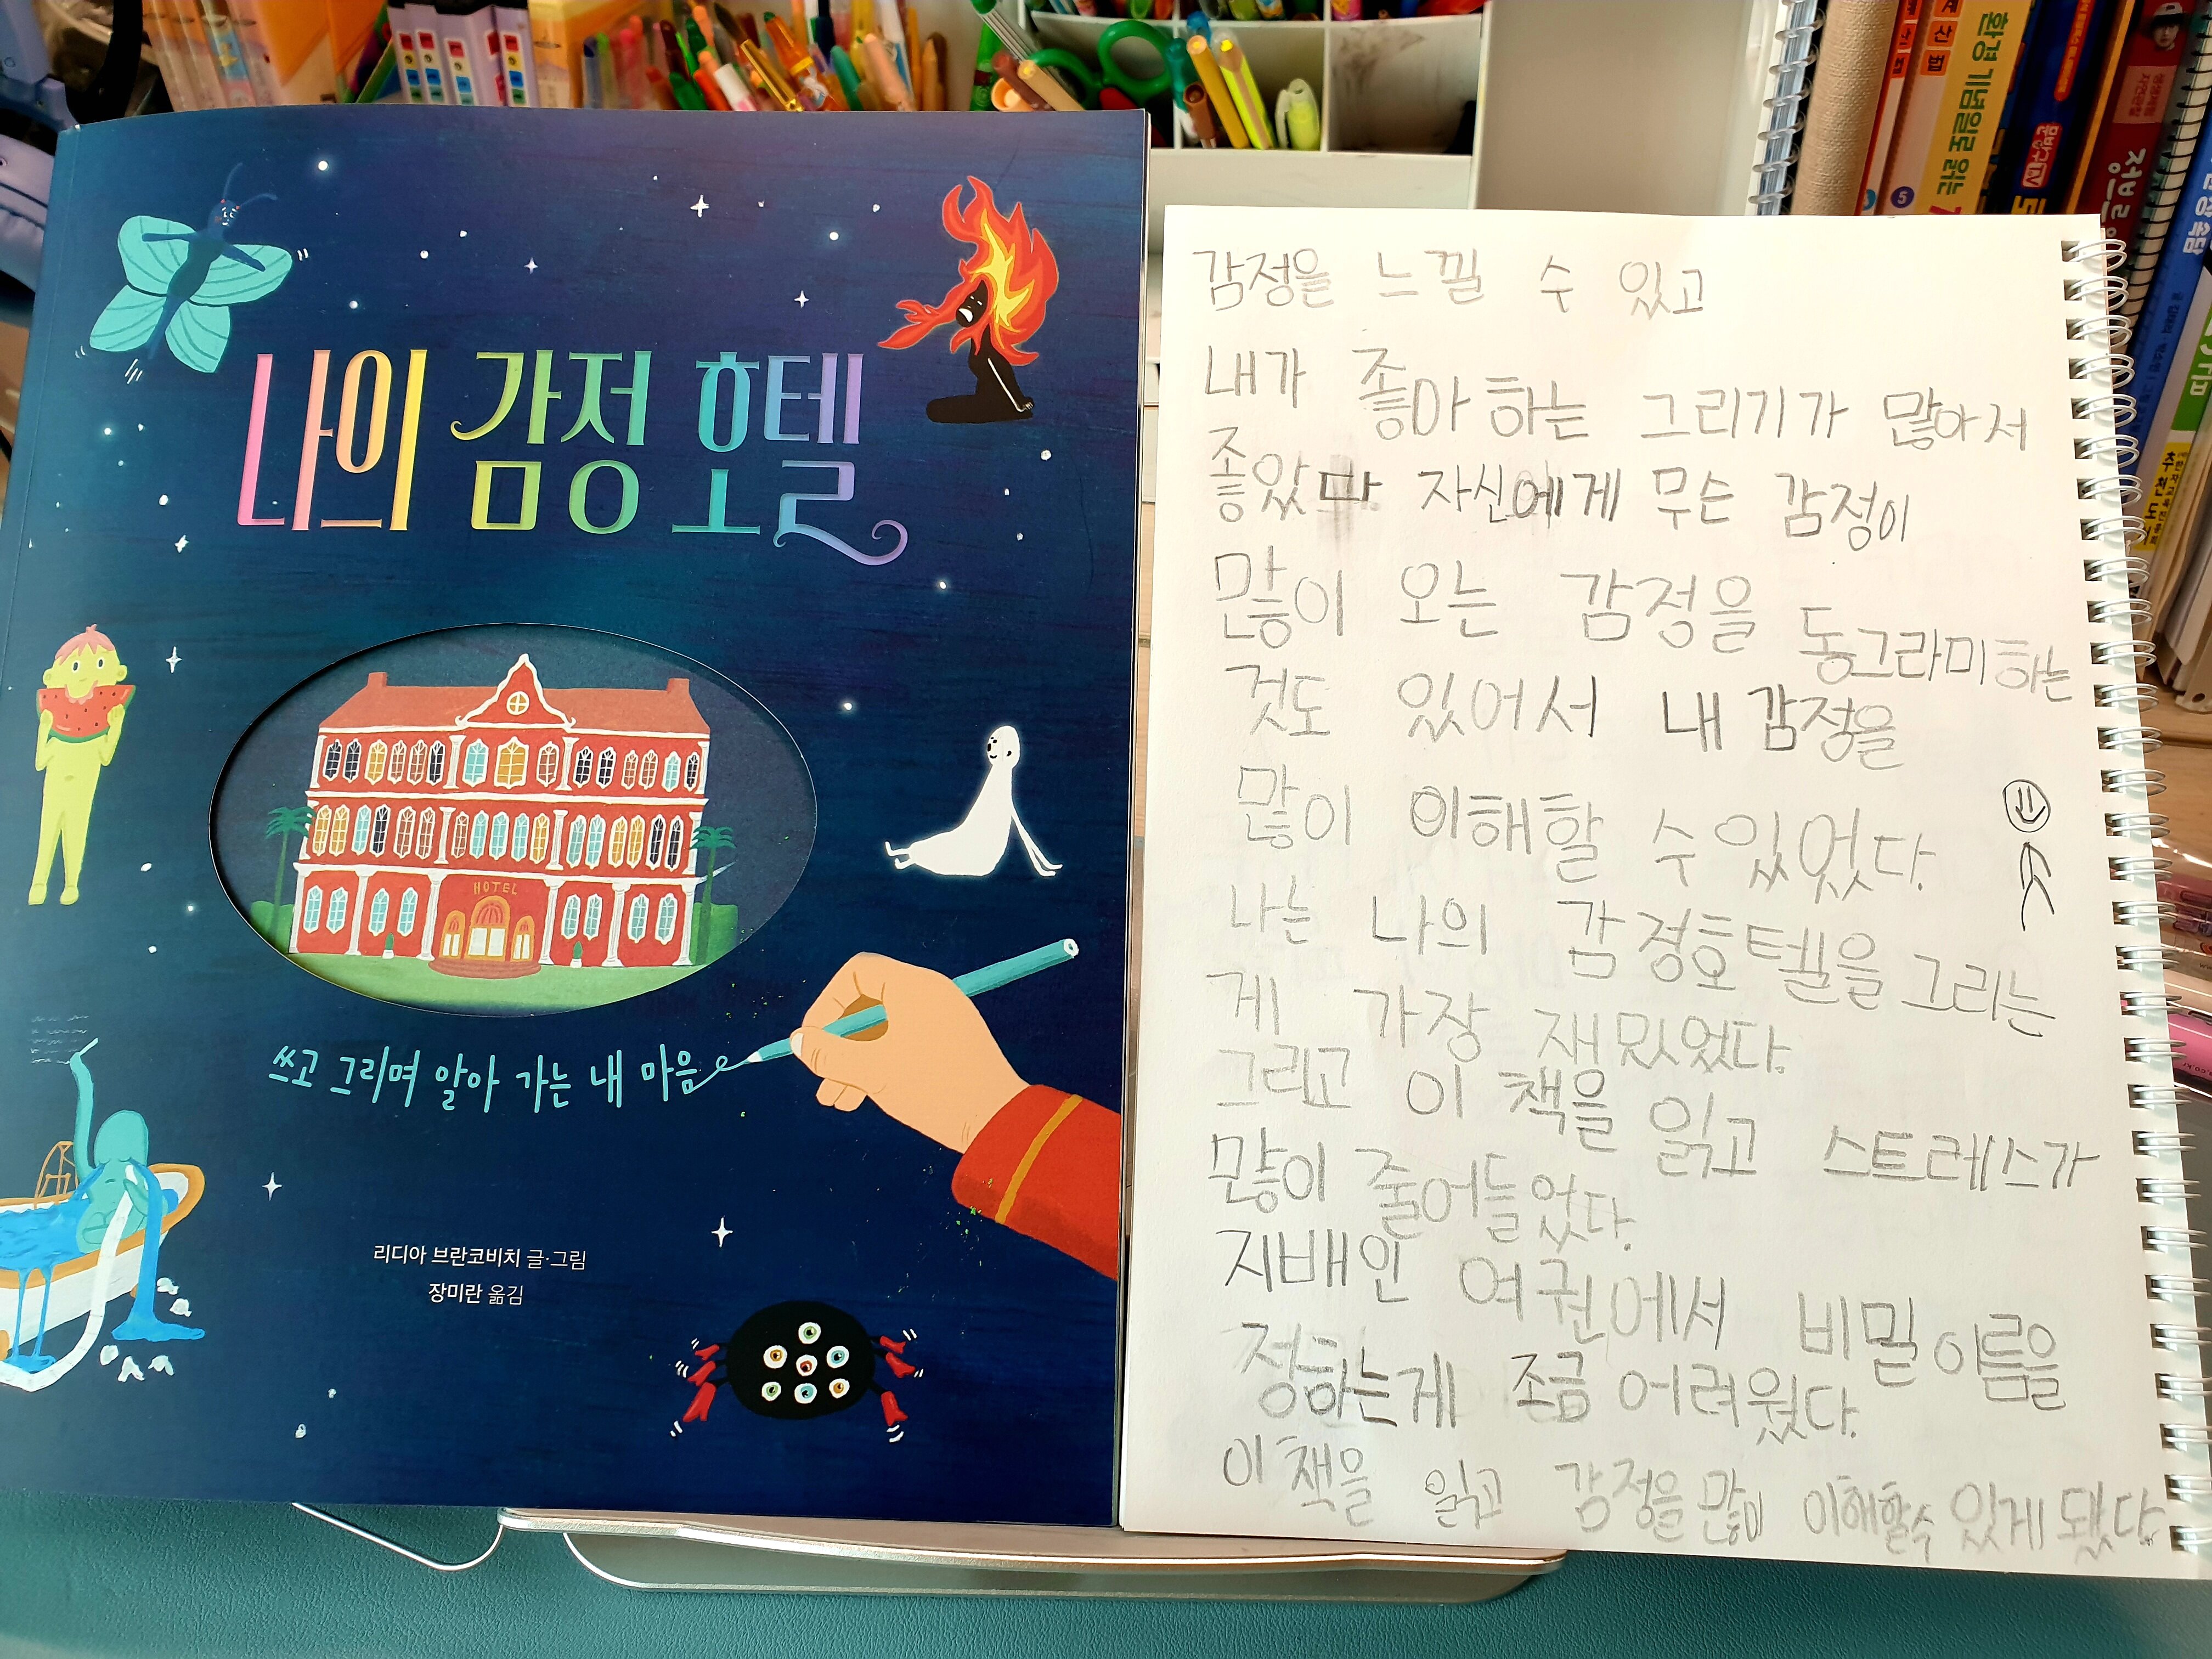 나의 감정 호텔
HOTEL
쓰고 그리며 알아 가는 내 마음
리디아 브란코비치 글·그림
장미란 옮김
감정을 느낄 수 있고
내가 좋아하는 그리기가 많아서
좋았다. 자신에게 무슨 감정이
많이 오는 감정을 동그라미하는
것도 있어서 내 감정을
많이 이해할 수 있었다.
나는 나의 감정호텔을 그리는
게 가장 재밌었다.
그리고 이 책을 읽고 스트레스가
많이 줄어들었다.
지배인 여권에서 비밀이름을
정하는게 조금 어려웠다.
이 책을 읽고 감정을 많이 이해할수 있게 됐다.
계산법
5
환경 기념일로 읽는
문방구TV